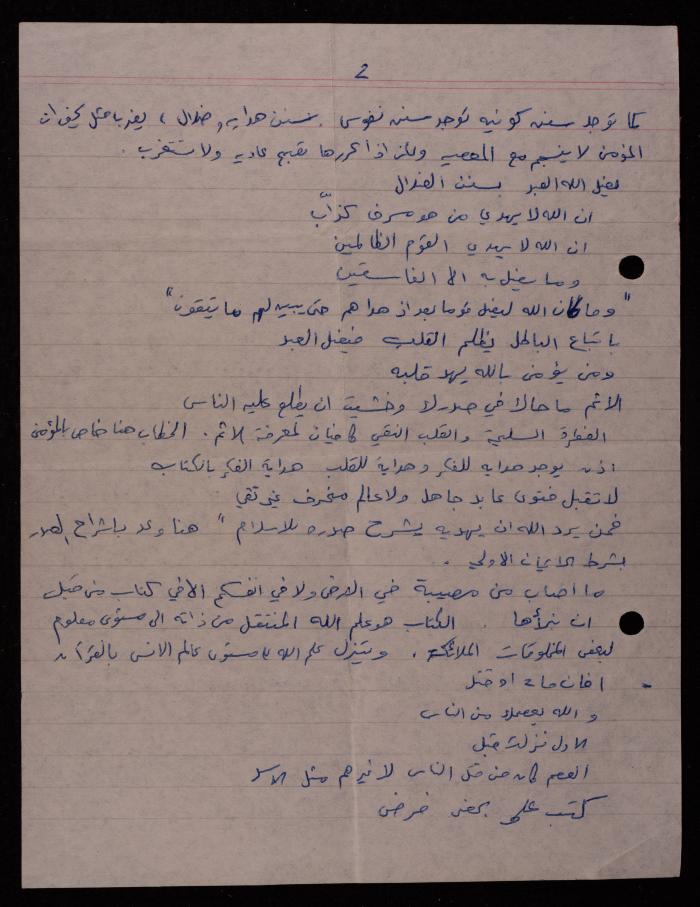 2
كما توجد سنن كونيه توجد سنن نفوس . سنن هدايه وضلال ،
المؤمن لا ينسجم مع المعصيه ولكن اذا كررها تصبح عاديه ولا تستغرب .
يضل الله العبد بسنن الضلال
ان الله لا يهدي من هو مسرف كذّاب
ان الله لا يهدي القوم الظالمين
وما يضل به الا الفاسقين
"وما كان الله ليضل قوما بعد اذ هداهم حتى يبين لهم ما يتقون"
باتباع الباطل يظلم القلب فيضل العبد
ومن يؤمن بالله يهد قلبه
الاثم ما حاك في صدرك وخشيت ان يطلع عليه الناس
الفطرة السليمة والقلب النقي كافيان لمعرفة الاثم . الخطاب هنا خاص بالمؤمن
اذن يوجد هدايه للفكر وهداية للقلب هداية الفكر بالكتاب
لا تقبل فتوى عابد جاهل ولا عالم منحرف غير تقي
فمن يرد الله ان يهديه يشرح صدره للاسلام " هنا وعد بانشراح الصدر
بشرط الايمان الاولي .
ما اصاب من مصيبة في الارض ولا في انفسكم الا في كتاب من قبل
ان نبرأها . الكتاب هو علم الله المنتقل من ذاته الى مستوى معلوم
لبعض المخلوقات الملائكة . ويتنزل علم الله لمستوى عالم الانس بالقرآن
- افان مات او قتل
والله يعصمك من الناس
الاول نزلت قبل
العصم كان من قتل الناس لا غيرهم مثل
كتب على بمعنى فرض